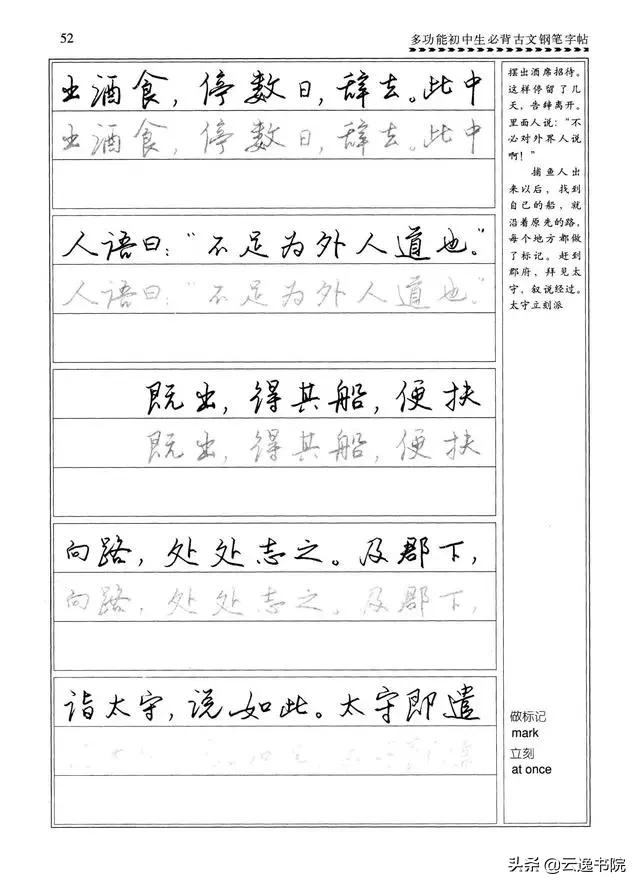 52
多功能初中生必背古文钢笔字帖
出酒食，停数日，辞去。此中
出酒食，停数日，辞去。此中
人语曰：“不足为外人道也。”
人语曰：“不足为外人道也。”
既出，得其船，便扶
既出，得其船，便扶
向路，处处志之。及郡下，
向路，处处志之。及郡下，
诣太守，说如此。太守即遣
摆出酒席招待。
这样停留了几
天，告辞离开。
里面人说：“不
必对外界人说
啊！”
捕鱼人出
来以后，找到
自己的船，就
沿着原先的路，
每个地方都做
了标记。赶到
郡府，拜见太
守，叙说经过。
太守立刻派
做标记
mark
立刻
at once
头条@云逸书院